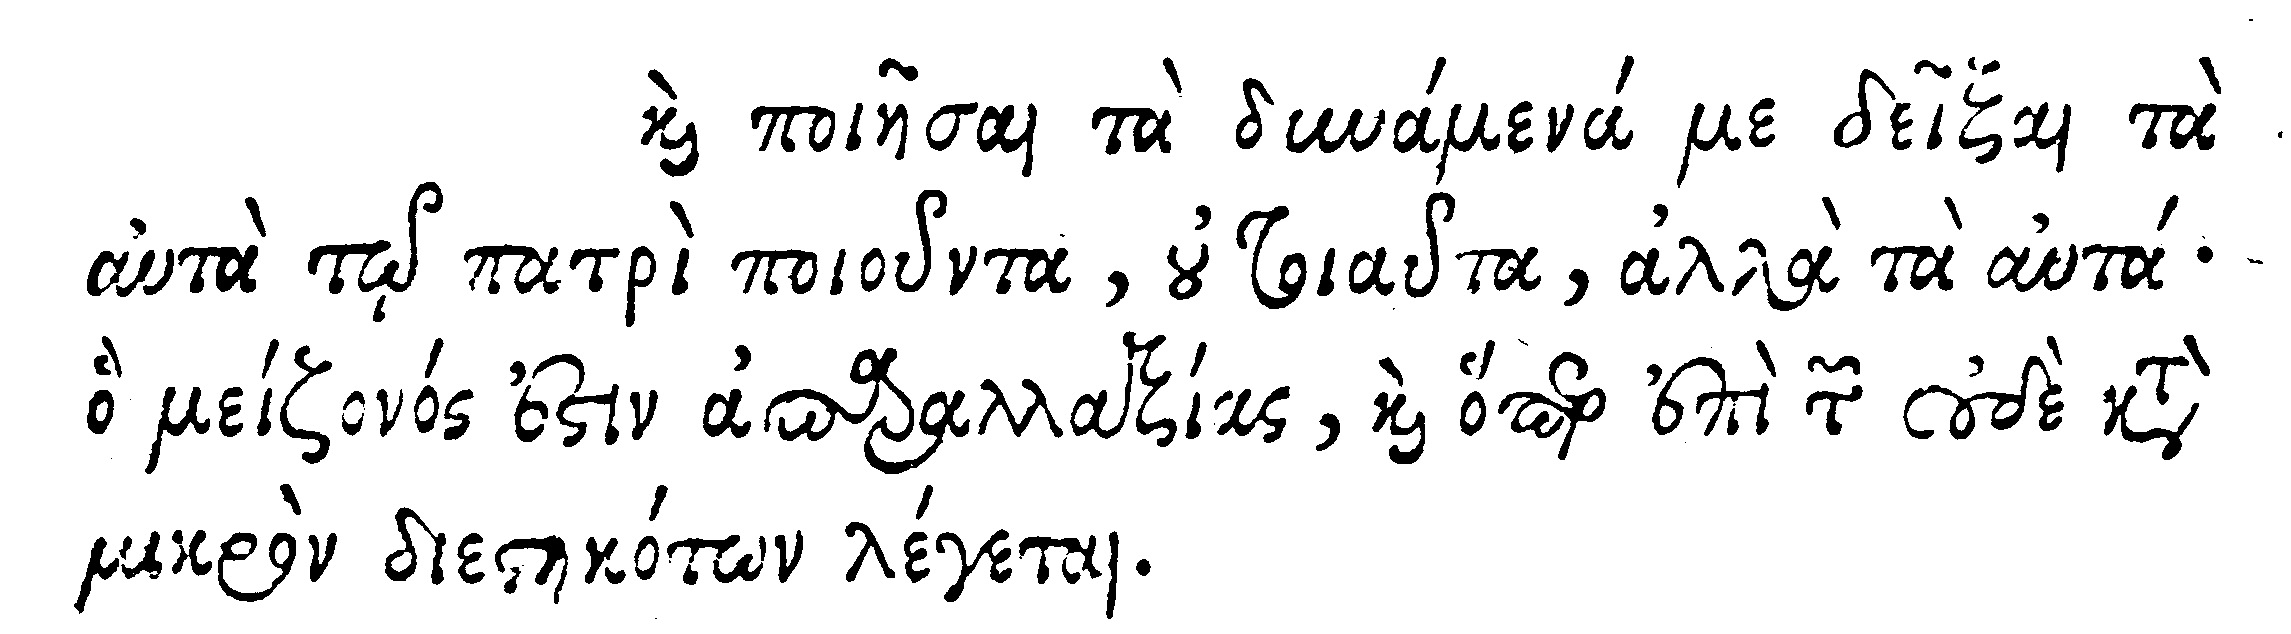 καὶ ποιῆσαι τὰ δυνάμενά με δεῖξαι τὰ
αὐτὰ τῷ πατρὶ ποιοῦντα, οὐ τοιαῦτα, ἀλλὰ τὰ αὐτά·
ὃ μείζονός ἐστιν ἀπαραλλαξίας, καὶ ὅπερ ἐπὶ τῶν οὐδὲ κατὰ
μικρὸν διεστηκότων λέγεται.